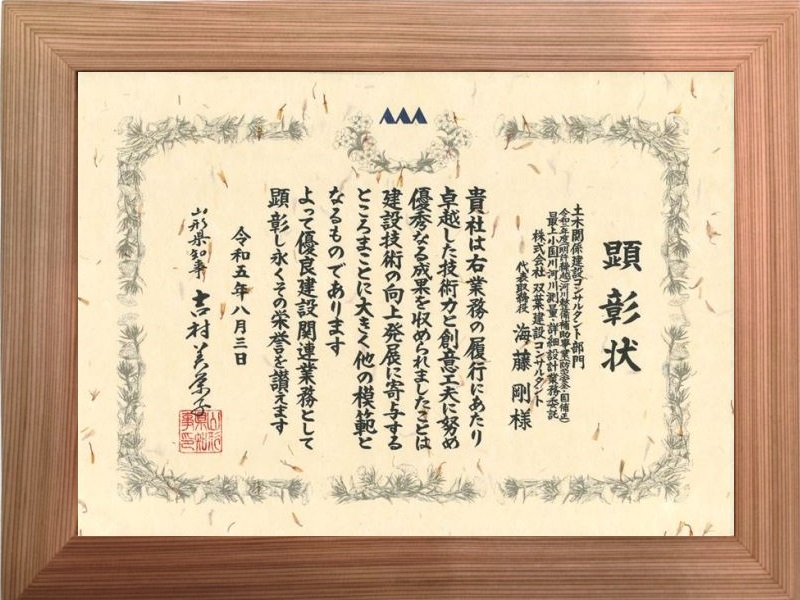 顕彰状
土木関係建設コンサルタント部門
令和三年度明許繰越河川整備補助事業(防災安全・国補正)
最上小国川河川測量・詳細設計業務委託
株式会社 双葉建設コンサルタント
代表取締役 海藤 剛 様
貴社は右業務の履行にあたり
卓越した技術力と創意工夫に努め
優秀なる成果を収められましたことは
建設技術の向上発展に寄与する
ところまことに大きく他の模範と
なるものであります
よって優良建設関連業務として
顕彰し永くその栄誉を讃えます
令和五年八月三日
山形県知事 吉村美栄子